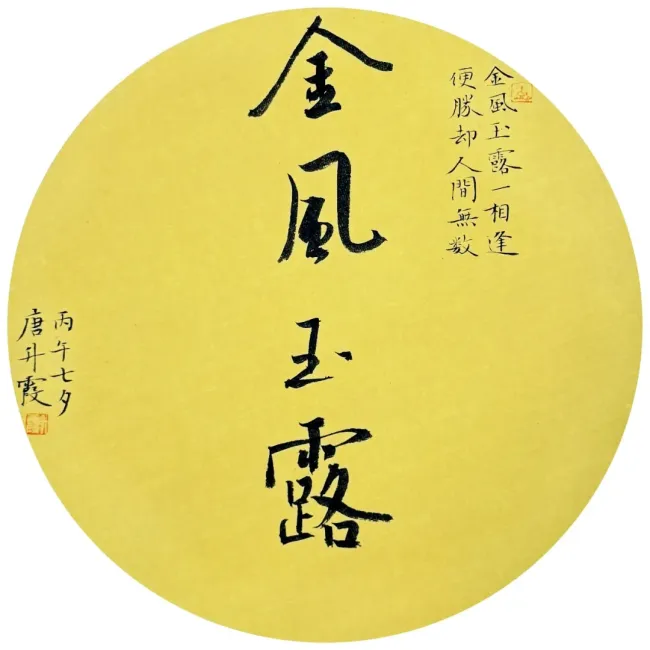 金風玉露一相逢
便勝却人間無数
金風玉露
丙午七夕
唐升霞